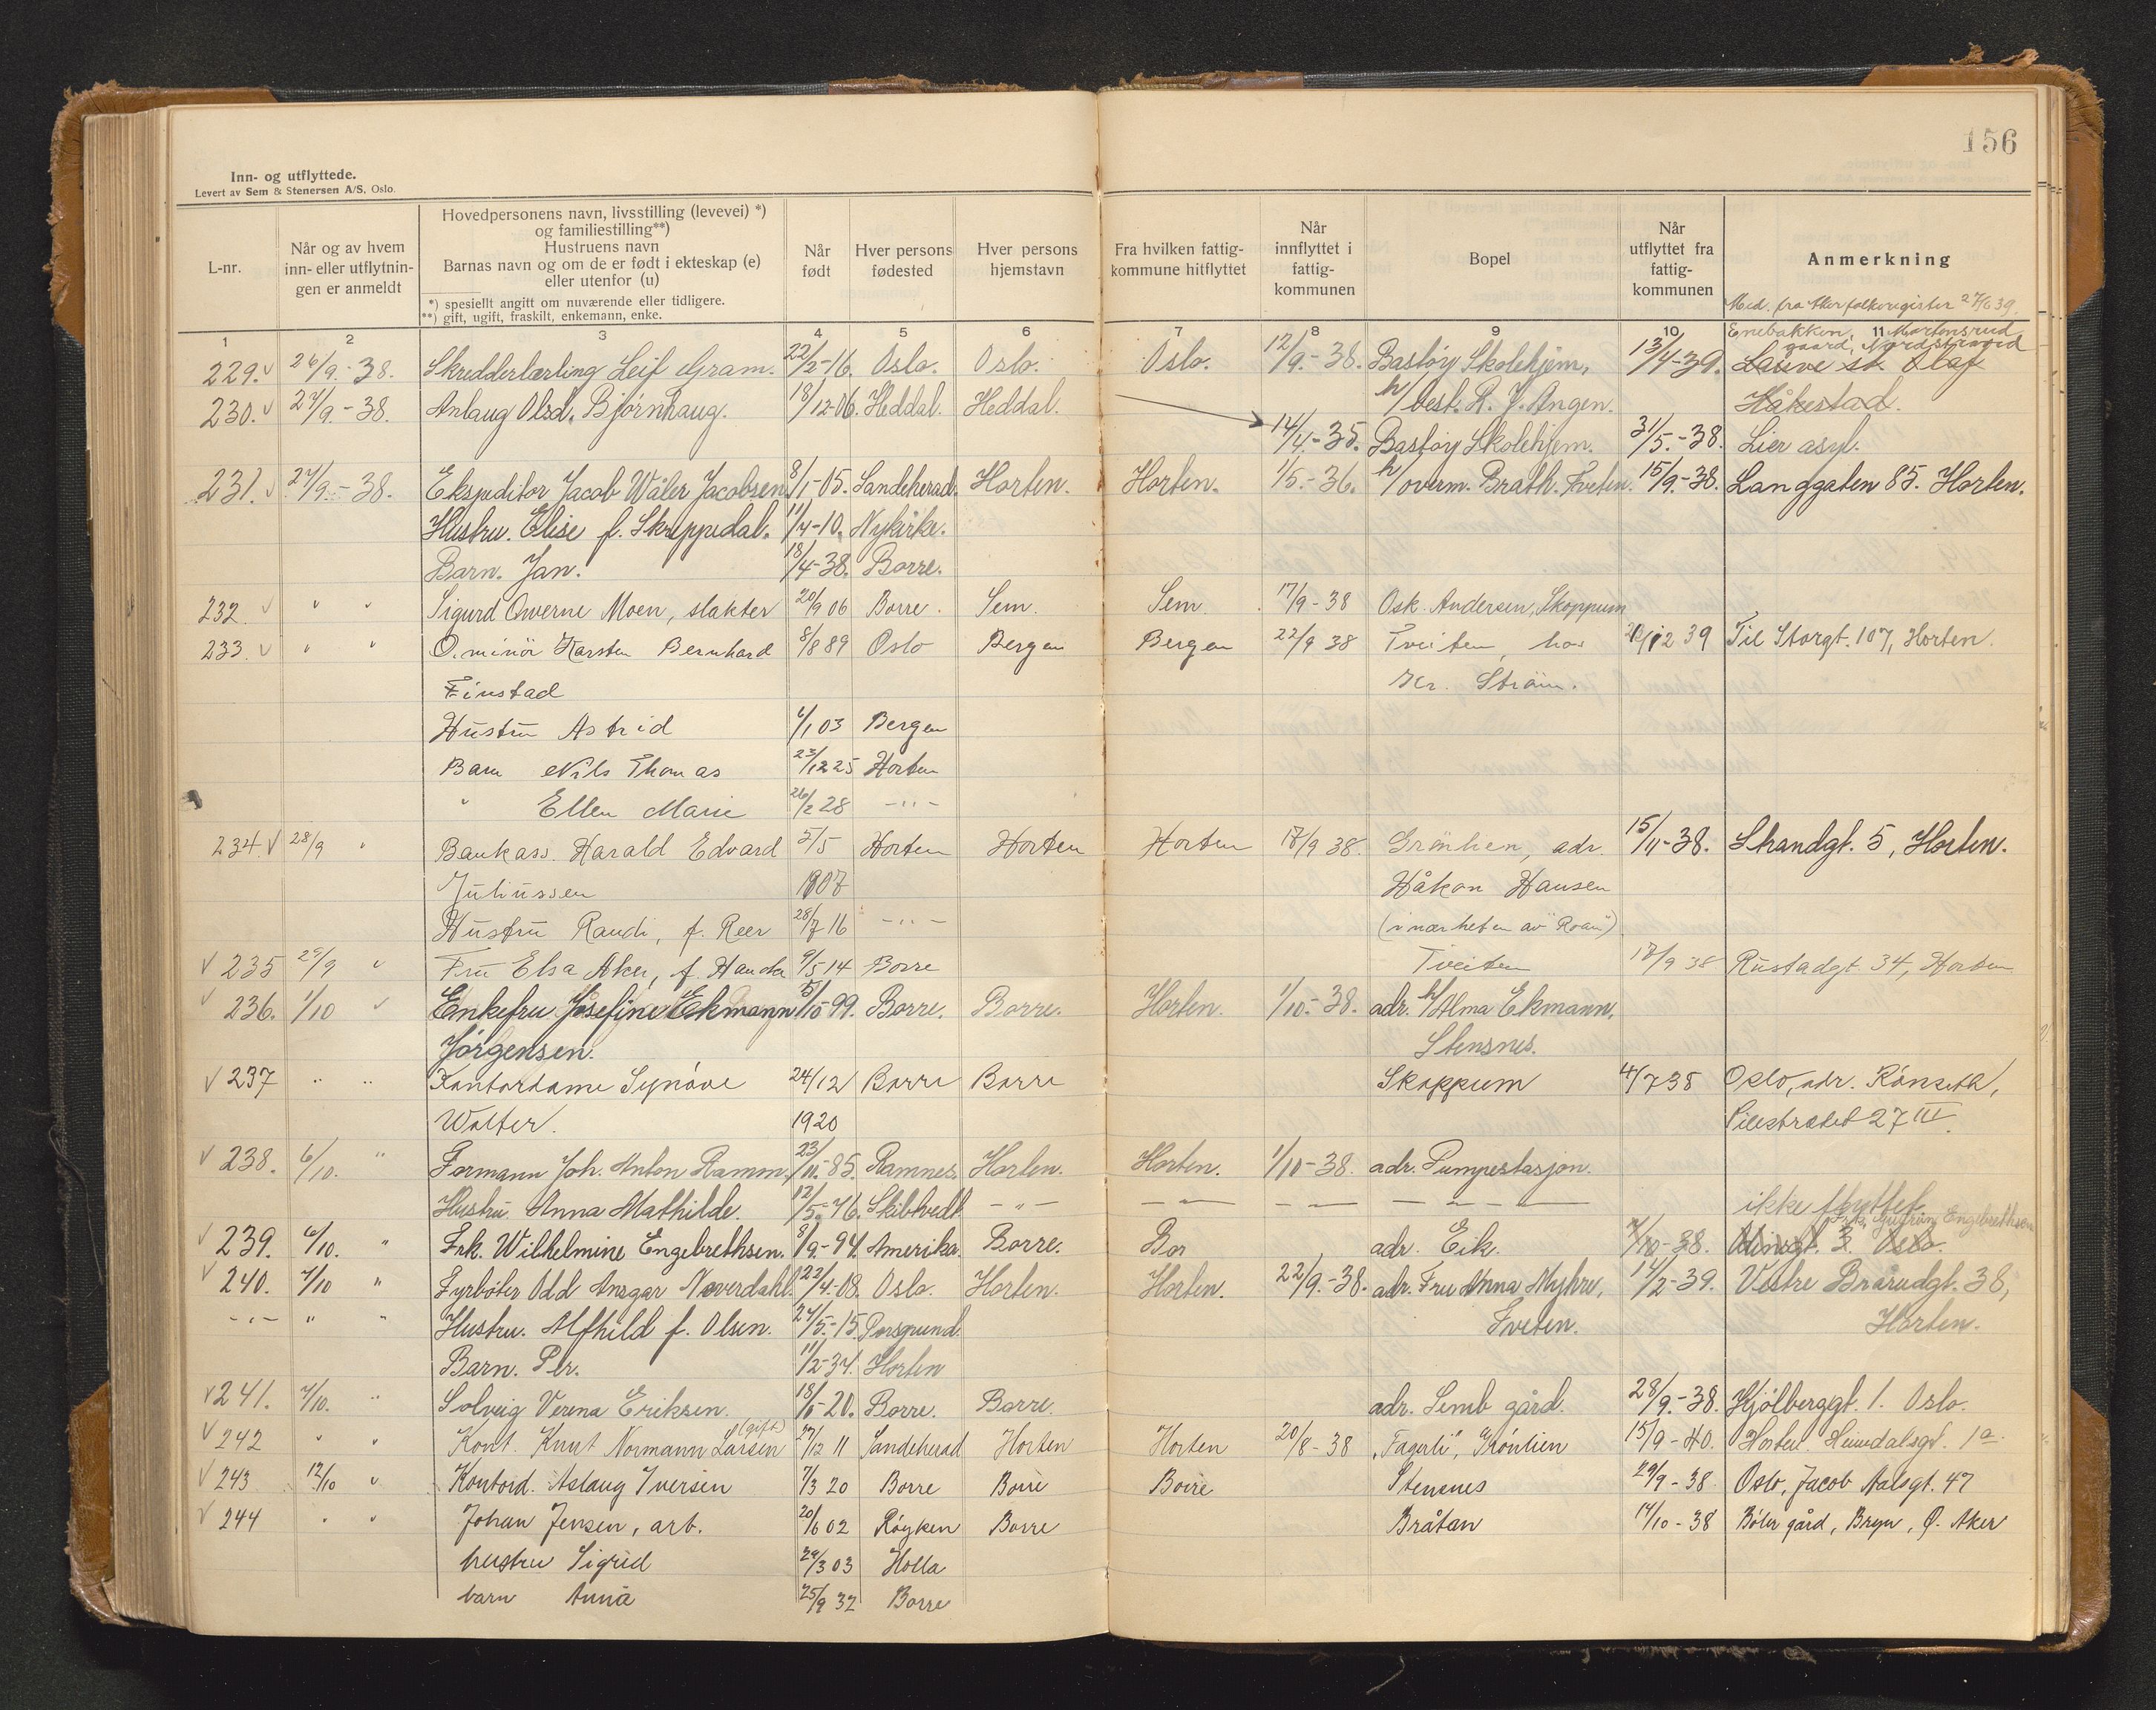 156
Inn- og utflyttede.
Levert av Sem & Stenersen A/S, Oslo.
L-nr.
Når og av hvem inn- eller utflytnin- gen er anmeldt
Hovedpersonens navn, livsstilling (levevei) *)
og familiestilling**)
Hustruens navn
Barnas navn og om de er født i ekteskap (e)
eller utenfor (u)
*) spesiellt angitt om nuværende eller tidligere.
**) gift, ugift, fraskilt, enkemann, enke.
Når født
Hver persons fødested
Hver persons hjemstavn
Fra hvilken fattig- kommune hitflyttet
Når innflyttet i fattig- kommunen
Bopel
Når utflyttet fra fattig- kommunen
Anmerkning
Med. fra Aker folkeregister 27/6 39.
1 2 3 4 5 6 7 8 9 10 11
Enebakkvn, Martensrud
gaard, Nordstrand
229. 26/9.-38. Skredderlærling Leif Gram. 22/2-16. Oslo. Oslo. Oslo. 12/9.-38. Bastøy Skolehjem, 13/4-39. Lauve st. Olaf
230. 27/9.-38. Anlaug Olsd. Bjørnhaug. 18/12-06. Heddal. Heddal. h/best. R. J. Angen. Håkestad.
14/4.-35. Bastøy Skolehjem. 31/5.-38. Lier asyl.
231. 27/9.-38. Ekspeditor Jacob Wåler Jacobsen 8/1-05. Sandeherad. Horten. Horten. 1/5.-36. h/overm. Bråth. Tveten. 15/9.-38. Langgaten 85. Horten.
Hustru. Elise f. Skreppedal. 11/4-10. Nykirke.
Barn. Jan. 18/4-38. Borre.
232. " " Sigurd Owerne Moen, slakter 20/9 06 Borre. Sem. Sem. 17/9-38 Osk. Andersen, Skoppum
233. " " O.minör Karsten Bernhard 8/8 89 Oslo Bergen Bergen 22/9 38 Tveiten, hos 12 39 Til Storgt. 107, Horten.
Finstad Kr. Ström.
Hustru Astrid 6/1 03 Bergen
Barn Nils Thomas 23/12 25 Horten
" Ellen Marie 26/2 28 -"-
234. 28/9 " Bankass. Harald Edvard 5/5 Horten Horten Horten 17/9 38. Grönlien, adr. 15/11-38. Strandgt. 5, Horten.
Juliussen 1907 Håkon Hansen
Hustru Randi, f. Reer 28/7 16 -"- (i nærheten av "Roan")
235 29/9 " Fru Elsa Aker, f. 9/5 14 Borre Tveiten 17/9 38 Rustadgt. 34, Horten
236. 1/10 " Enkefru Josefine Ekmann 5/10-99. Borre. Borre. Horten. 1/10.-38. adr. h/Alma Ekmann,
Jørgensen. Stensnes.
237 " " Kontordame Synøve 24/12 Borre Borre Skoppum 4/7 38 Oslo, adr. Rönseth,
Wolter. 1920 Pilestredet 27 III
238. 6/10. " Formann Joh. Anton Ramm, 23/11.-85. Ramnes. Horten. Horten. 1/10-38. adr. Pumpestasjon.
Hustru Anna Mathilde. 12/5.-76. Skibtvedt -"- ikke flyttet
Frk. Gudrun Engebrethsen
239. 6/10. " Frk. Wilhelmine Engebrethsen. 8/9.-94. Amerika. Borre. Bor adr. Eik. 7/10-38. 3. Oslo.
240. 7/10 " Fyrbøter Odd Ansgar Noverdahl. 22/4-08. Oslo. Horten. Horten. 22/9.-38. adr. Fru Anna Myhre, 14/2-39. Vestre Brårudgt. 38,
-"- " " Hustru. Alfhild f. Olsen. 24/5.-15. Porsgrund. Tveten. Horten.
Barn. Per. 11/2-34. Horten
241. 7/10. " Solveig Verena Eriksen. 18/10-20. Borre. Borre. adr. Semb gård. 28/9.-38. Hjølberggt. 1. Oslo.
242 " " Kont. Knut Normann Larsen (gift) 27/12 11 Sandeherad Horten Horten 20/8-38 "Fagerli", Grönlien 15/9-40. Horten. Heimdalsgt. 1a.
243 12/10 " Kontord. Aslaug Iversen 7/3 20 Borre Borre Borre Stensnes 29/9-38 Oslo, Jacob Aalsgt. 47
244 " " Johan Jensen, arb. 20/6 02 Røyken Borre Bråtan 14/10-38 Bøler gård, Bryn, Ø. Aker
hustru Sigrid 29/3 03 Holla
barn Anna 25/9 32 Borre